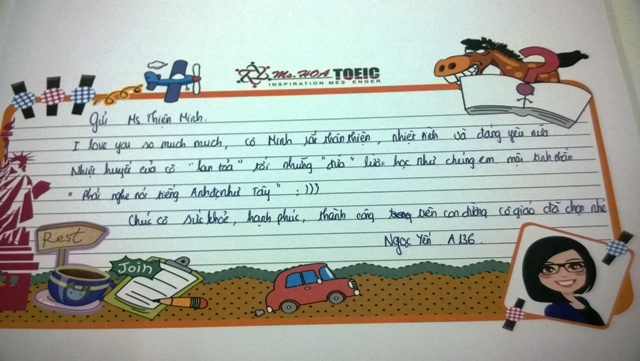 Ms. HOA TOEIC
INSPIRATION MESSENGER
Gửi Ms Thiên Minh.
I love you so much much, cô Minh rất thân thiện, nhiệt tình và đáng yêu nữa
Nhiệt huyết của cô "lan toả" tới những "đứa" lười học như chúng em một tinh thần
"Phải nghe nói tiếng Anh như Tây" :)))
Chúc cô sức khoẻ, hạnh phúc, thành công trên con đường cô giáo đã chọn nhé
Ngọc Yến A136.
Rest
Join